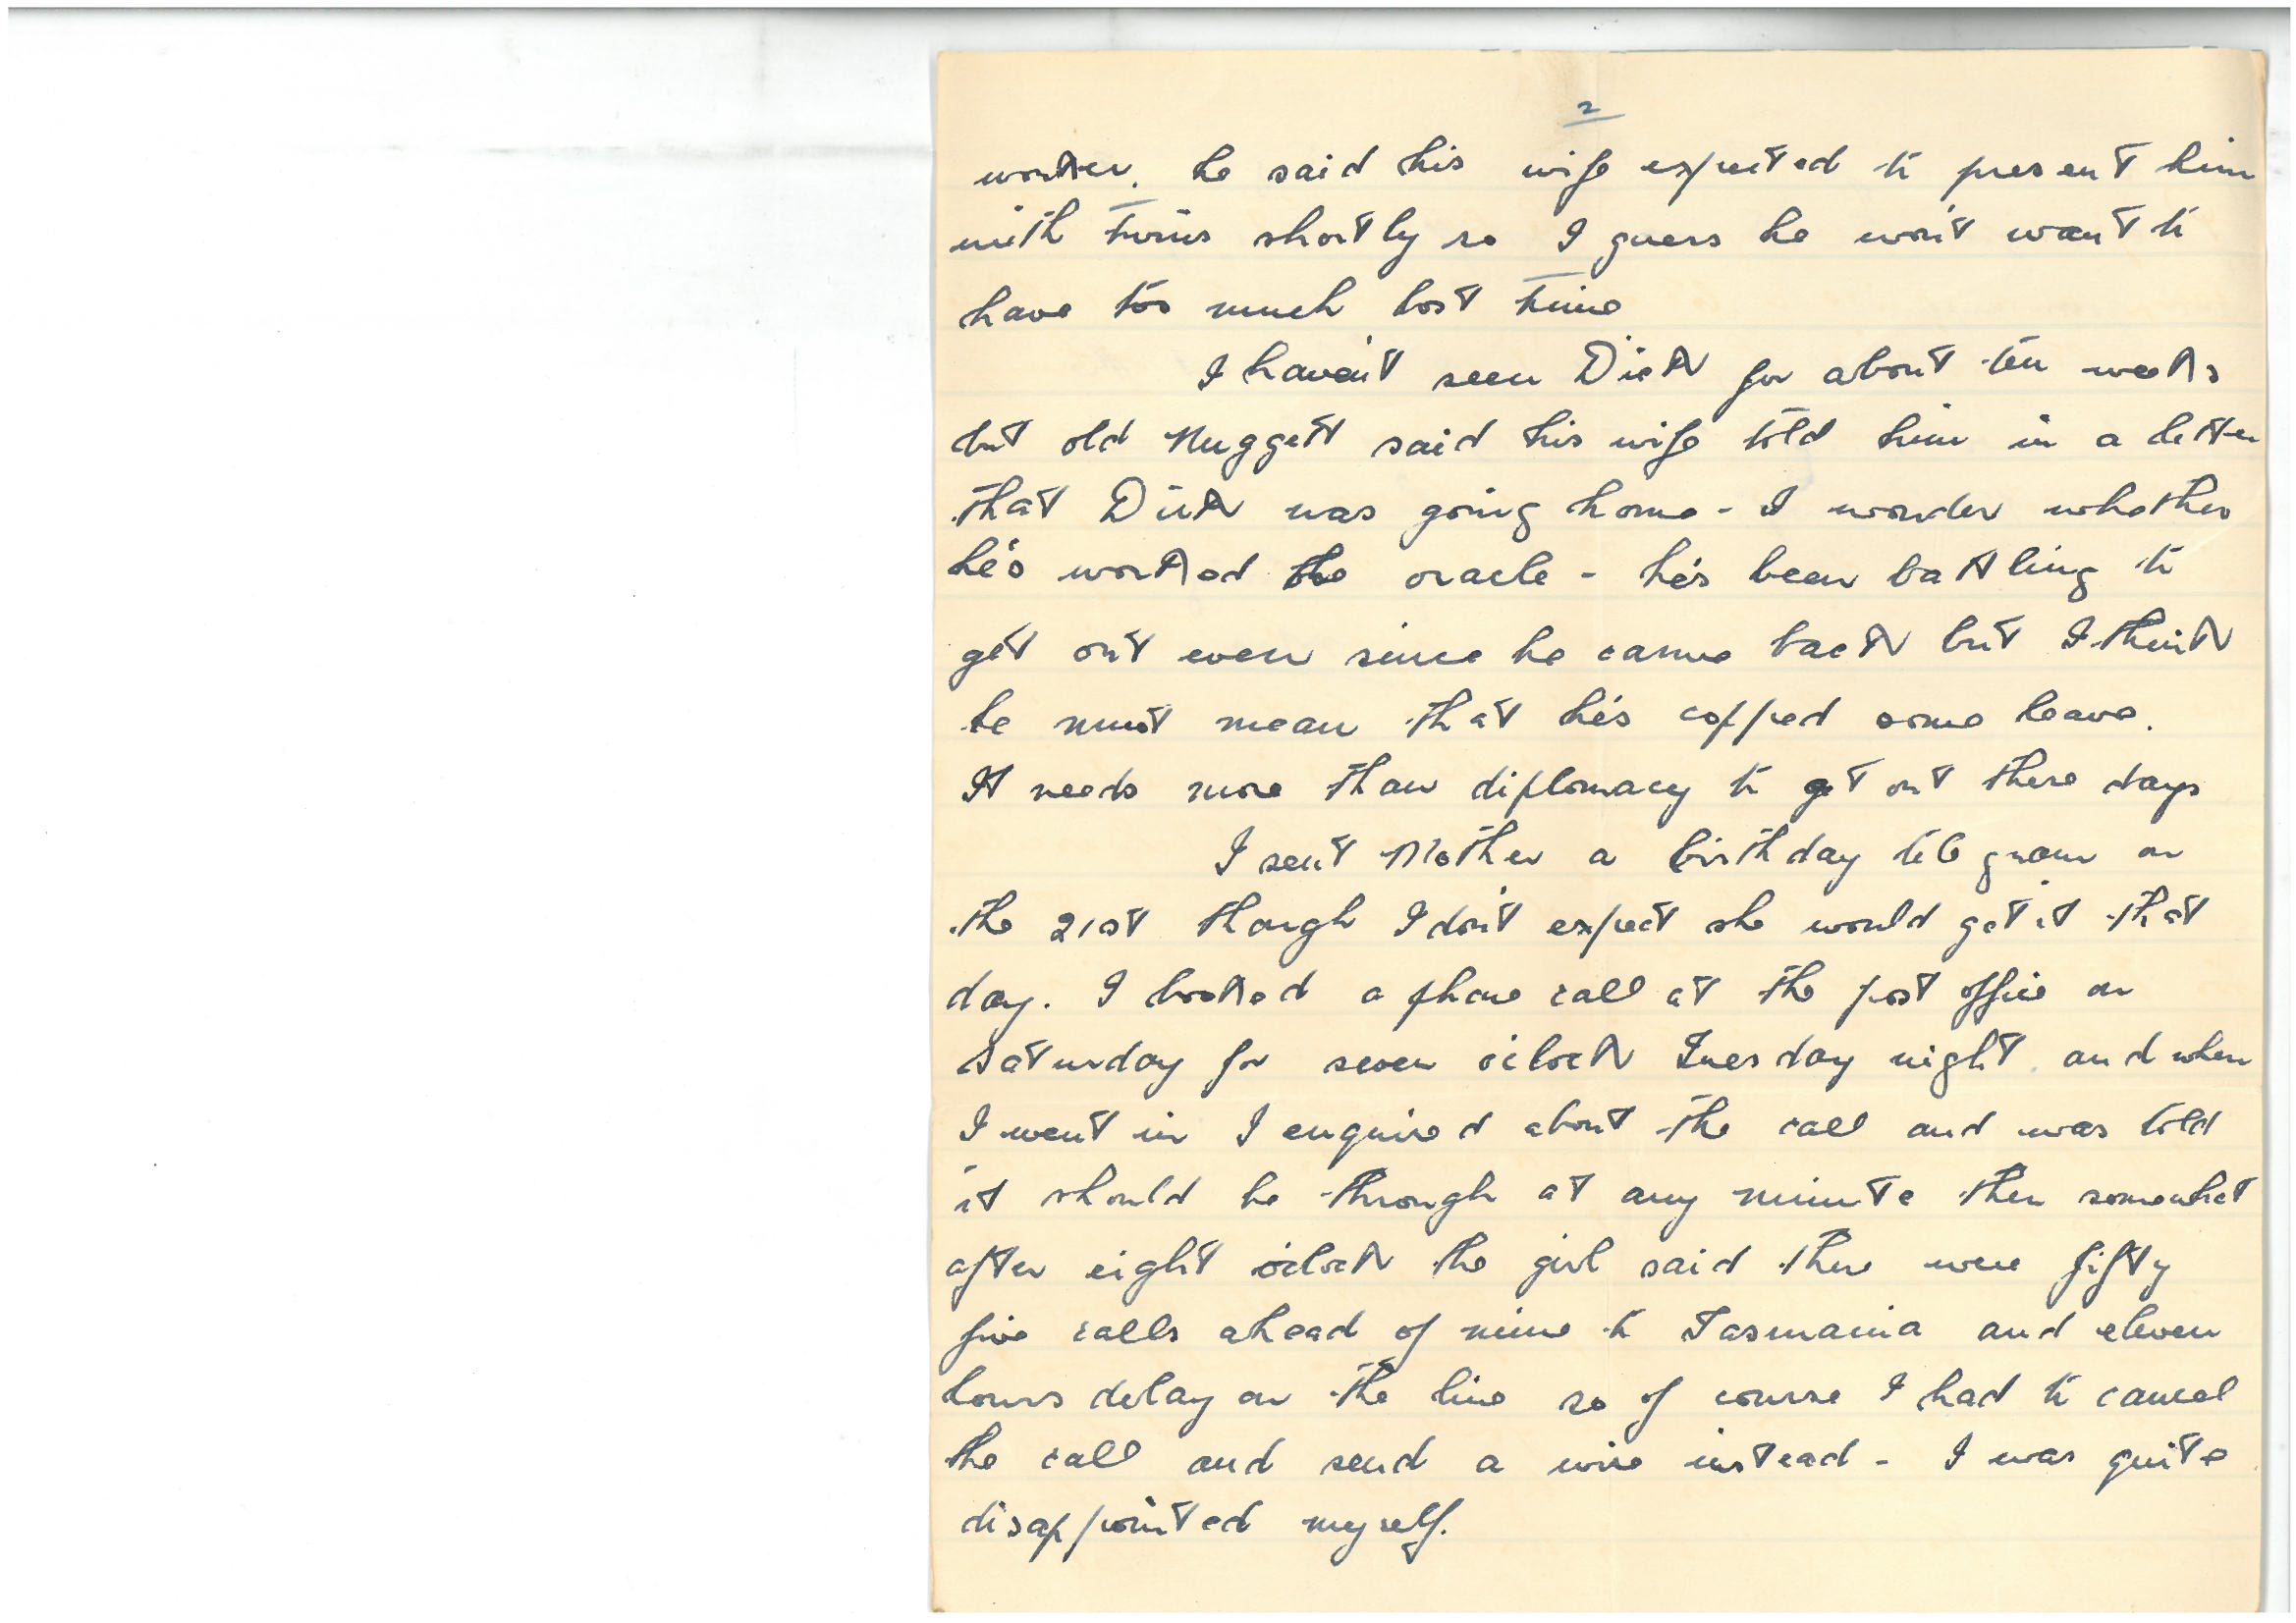 2
worker. he said his wife expected to present him
with twins shortly so I guess he won't want to
have too much lost time
I haven't seen Dick for about ten weeks
but old Nuggett said his wife told him in a letter
that Dick was going home - I wonder whether
he's worked the oracle - he's been battling to
get out ever since he came back but I think
he must mean that he's copped some leave.
It needs more than diplomacy to get out these days
I sent Mother a birthday telegram on
the 21st though I don't expect she would get it that
day. I booked a phone call at the post office on
Saturday for seven o'clock Tuesday night. and when
I went in I enquired about the call and was told
it should be through at any minute then somewhat
after eight o'clock the girl said there were fifty
five calls ahead of mine to Tasmania and eleven
hours delay on the line so of course I had to cancel
the call and send a wire instead - I was quite
disappointed myself.